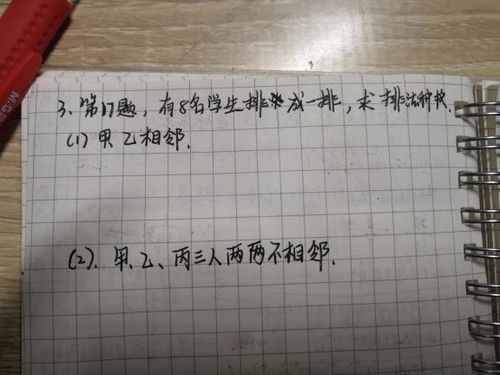 3、第17题，有8名学生排成一排，求排法种数.
(1) 甲乙相邻.
(2). 甲、乙、丙三人两两不相邻.